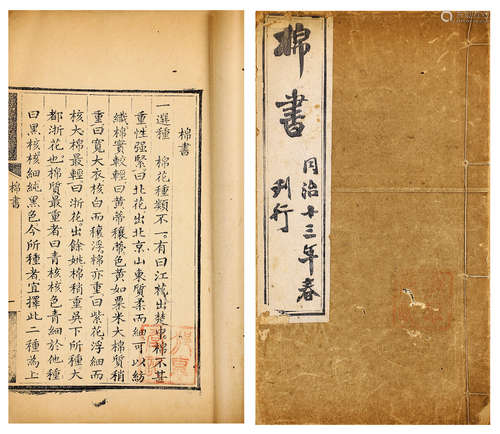 棉書
一選種 棉花種類不一有曰江出楚中棉不甚
重性强緊曰北花出北京山東質柔而細可以紡
織棉實較輕曰黃蔕穰蔕色黃如粟米大棉質稍
重曰寬大衣核白而穰浮棉亦重曰紫花浮細而
核大棉最輕曰浙花出餘姚棉稍重吳下所種大
都浙花也棉質最重者曰青核核色青細於他種
曰黑核核細純黑色今所種者宜擇此二種為上
棉書
棉書
同治十三年春
刊行